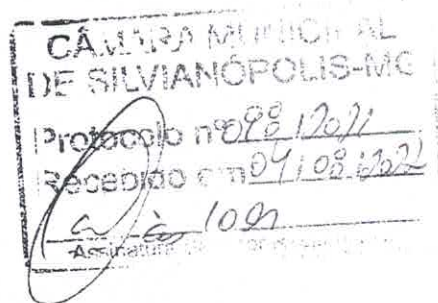 CÂMARA MUNICIPAL
DE SILVIANÓPOLIS-MG
Protocolo nº 098/2021
Recebido em 04/08/2021
Assinatura